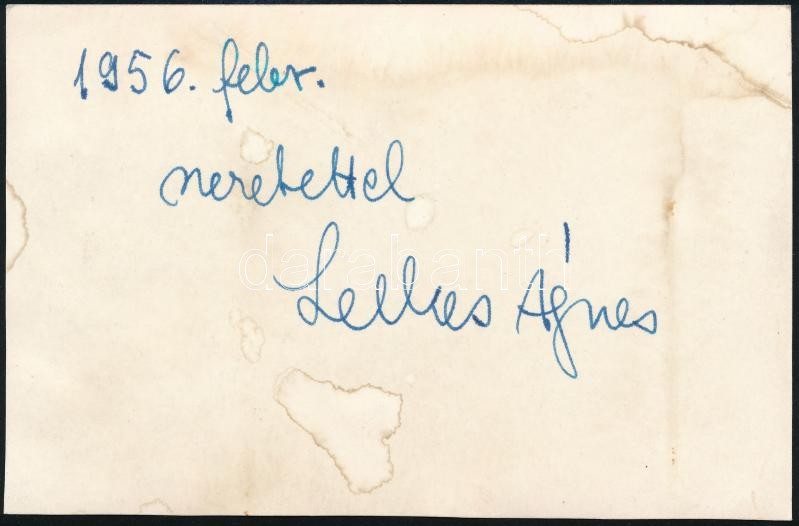 1956. febr.
szeretettel
Lelkes Ágnes
darabanth